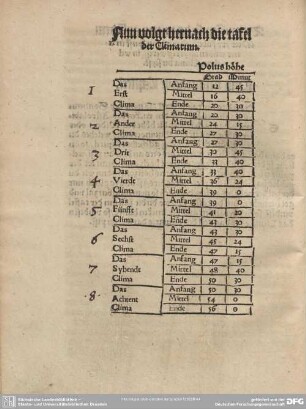 Nun volgt hernach die tafel
der Climatum.
Polus höhe
Grad Minut
1 Das Anfang 12 45
Erst Mittel 16 40
Clima Ende 20 30
Das Anfang 20 30
2 Ander Mittel 24 15
Clima Ende 27 30
Das Anfang 27 30
3 Drit Mittel 30 45
Clima Ende 33 40
Das Anfang 33 40
4 Vierdt Mittel 36 24
Clima Ende 39 0
Das Anfang 39 0
5 Fünfft Mittel 41 20
Clima Ende 43 30
Das Anfang 43 30
6 Sechst Mittel 45 24
Clima Ende 47 15
Das Anfang 47 15
7 Sybendt Mittel 48 40
Clima Ende 50 30
Das Anfang 50 30
.8. Achtent Mittel 54 0
Clima Ende 56 0